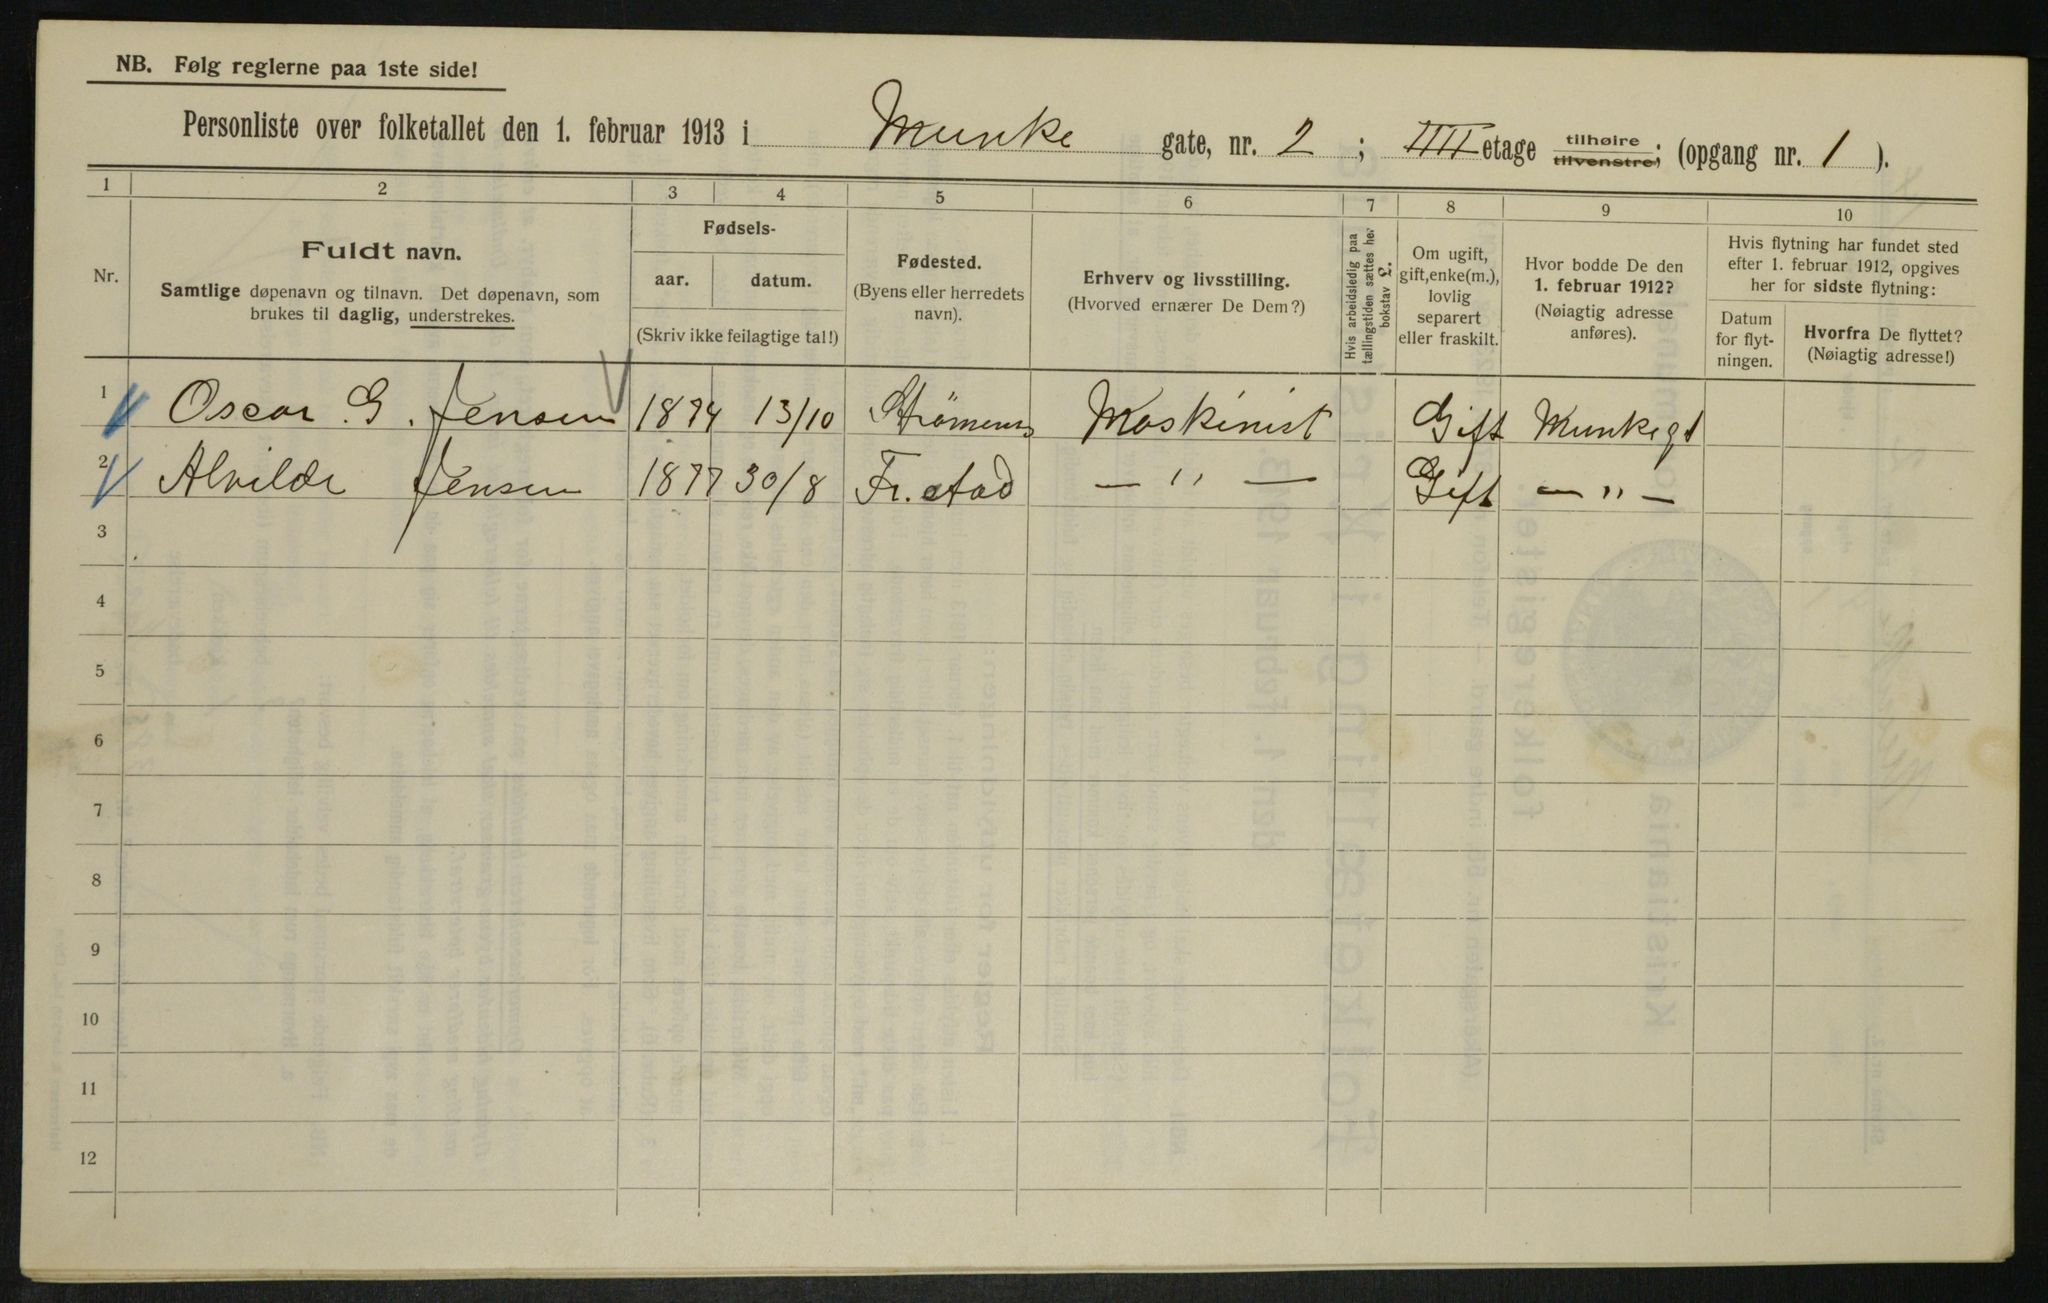 NB. Følg reglerne paa 1ste side!
Personliste over folketallet den 1. februar 1913 i Munke gate, nr. 2 ; IIII etage tilhøire tilvenstre; (opgang nr. 1 ).
1 2 3 4 5 6 7 8 9 10
Nr.
Fuldt navn.
Samtlige døpenavn og tilnavn. Det døpenavn, som
brukes til daglig, understrekes.
Fødsels-
aar. datum.
(Skriv ikke feilagtige tal!)
Fødested.
(Byens eller herredets
navn).
Erhverv og livsstilling.
(Hvorved ernærer De Dem?)
Hvis arbeidsledig paa
tællingstiden sættes her
bokstav £.
Om ugift,
gift, enke(m.),
lovlig
separert
eller fraskilt.
Hvor bodde De den
1. februar 1912?
(Nøiagtig adresse
anføres).
Hvis flytning har fundet sted
efter 1. februar 1912, opgives
her for sidste flytning:
Datum
for flyt-
ningen.
Hvorfra De flyttet?
(Nøiagtig adresse!)
1 Oscar G. Jensen 1874 13/10 Strömens Maskinist Gift Munkegt
2 Alvilde Jensen 1877 30/8 Fr.stad — " — Gift — " —
3
4
5
6
7
8
9
10
11
12